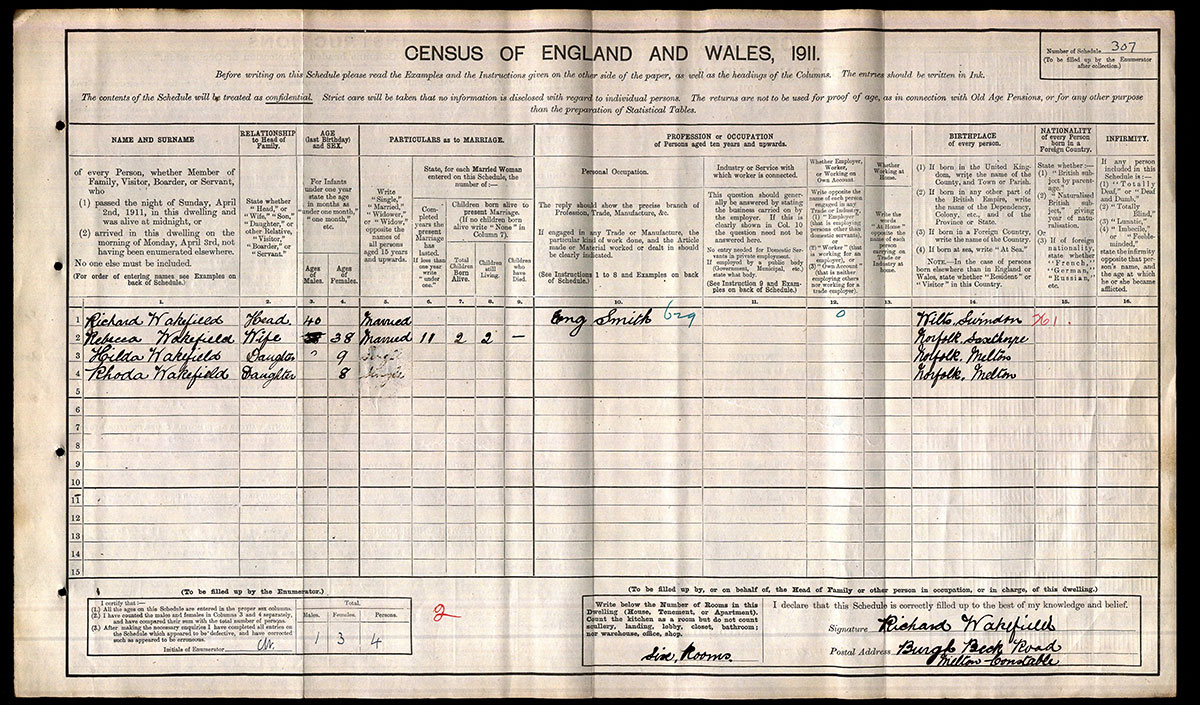 Number of Schedule 307
(To be filled up by the Enumerator
after collection.)
CENSUS OF ENGLAND AND WALES, 1911.
Before writing on this Schedule please read the Examples and the Instructions given on the other side of the paper, as well as the headings of the Columns. The entries should be written in Ink.
The contents of the Schedule will be treated as confidential. Strict care will be taken that no information is disclosed with regard to individual persons. The returns are not to be used for proof of age, as in connection with Old Age Pensions, or for any other purpose
than the preparation of Statistical Tables.
NAME AND SURNAME
of every Person, whether Member of
Family, Visitor, Boarder, or Servant,
who
(1) passed the night of Sunday, April
2nd, 1911, in this dwelling and
was alive at midnight, or
(2) arrived in this dwelling on the
morning of Monday, April 3rd, not
having been enumerated elsewhere.
No one else must be included.
(For order of entering names see Examples on
back of Schedule.)
RELATIONSHIP
to Head of
Family.
State whether
"Head," or
"Wife," "Son,"
"Daughter," or
other Relative,
"Visitor,"
"Boarder," or
"Servant."
AGE
(last Birthday)
and SEX.
For Infants
under one year
state the age
in months as
"under one month,"
"one month,"
etc.
Ages
of
Males.
Ages
of
Females.
PARTICULARS as to MARRIAGE.
Write
"Single,"
"Married,"
"Widower,"
or "Widow,"
opposite the
names of
all persons
aged 15 years
and upwards.
State, for each Married Woman
entered on this Schedule, the
number of:—
Com-
pleted
years the
present
Marriage
has
lasted.
If less than
one year
write
"under
one."
Children born alive to
present Marriage.
(If no children born
alive write "None" in
Column 7).
Total
Children
Born
Alive.
Children
still
Living.
Children
who
have
Died.
PROFESSION or OCCUPATION
of Persons aged ten years and upwards.
Personal Occupation.
The reply should show the precise branch of
Profession, Trade, Manufacture, &c.
If engaged in any Trade or Manufacture, the
particular kind of work done, and the Article
made or Material worked or dealt in should
be clearly indicated.
(See Instructions 1 to 8 and Examples on back
of Schedule.)
Industry or Service with
which worker is connected.
This question should gener-
ally be answered by stating
the business carried on by
the employer. If this is
clearly shown in Col. 10
the question need not be
answered here.
No entry needed for Domestic Ser-
vants in private employment.
If employed by a public body
(Government, Municipal, etc.)
state what body.
(See Instruction 9 and Exam-
ples on back of Schedule.)
Whether Employer,
Worker,
or Working on
Own Account.
Write opposite the
name of each person
engaged in any
Trade or Industry,
(1) "Employer"
(that is employing
persons other than
domestic servants),
or
(2) "Worker" (that
is working for an
employer), or
(3) "Own Account"
(that is neither
employing others
nor working for a
trade employer).
Whether
Working at
Home.
Write the
words
"At Home"
opposite the
name of each
person
carrying on
Trade or
Industry at
home.
BIRTHPLACE
of every person.
(1) If born in the United King-
dom, write the name of the
County, and Town or Parish.
(2) If born in any other part of
the British Empire, write
the name of the Dependency,
Colony, etc., and of the
Province or State.
(3) If born in a Foreign Country,
write the name of the Country.
(4) If born at sea, write "At Sea."
NOTE.—In the case of persons
born elsewhere than in England or
Wales, state whether "Resident" or
"Visitor" in this Country.
NATIONALITY
of every Person
born in a
Foreign Country.
State whether:—
(1) "British sub-
ject by parent-
age."
(2) "Naturalised
British sub-
ject," giving
year of natu-
ralisation.
Or
(3) If of foreign
nationality,
state whether
"French,"
"German,"
"Russian,"
etc.
INFIRMITY.
If any person
included in this
Schedule is:—
(1) "Totally
Deaf," or "Deaf
and Dumb,"
(2) "Totally
Blind,"
(3) "Lunatic,"
(4) "Imbecile,"
or "Feeble-
minded,"
state the infirmity
opposite that per-
son's name, and
the age at which
he or she became
afflicted.
1. 2. 3. 4. 5. 6. 7. 8. 9. 10. 11. 12. 13. 14. 15. 16.
1 Richard Wakefield Head 40 Married Eng Smith 629 0 Wilts, Swindon 761
2 Rebecca Wakefield Wife 38 Married 11 2 2 — Norfolk Saxthorpe
3 Hilda Wakefield Daughter 9 Single Norfolk, Melton
4 Rhoda Wakefield Daughter 8 Single Norfolk, Melton
5
6
7
8
9
10
11
12
13
14
15
(To be filled up by the Enumerator.)
I certify that:—
(1.) All the ages on this Schedule are entered in the proper sex columns.
(2.) I have counted the males and females in Columns 3 and 4 separately,
and have compared their sum with the total number of persons.
(3.) After making the necessary enquiries I have completed all entries on
the Schedule which appeared to be defective, and have corrected
such as appeared to be erroneous.
Initials of Enumerator
Total.
Males. Females. Persons.
1 3 4
2
(To be filled up by, or on behalf of, the Head of Family or other person in occupation, or in charge, of this dwelling.)
Write below the Number of Rooms in this
Dwelling (House, Tenement, or Apartment).
Count the kitchen as a room but do not count
scullery, landing, lobby, closet, bathroom;
nor warehouse, office, shop.
Six Rooms.
I declare that this Schedule is correctly filled up to the best of my knowledge and belief.
Signature Richard Wakefield
Postal Address Burgh Beck Road
Melton-Constable